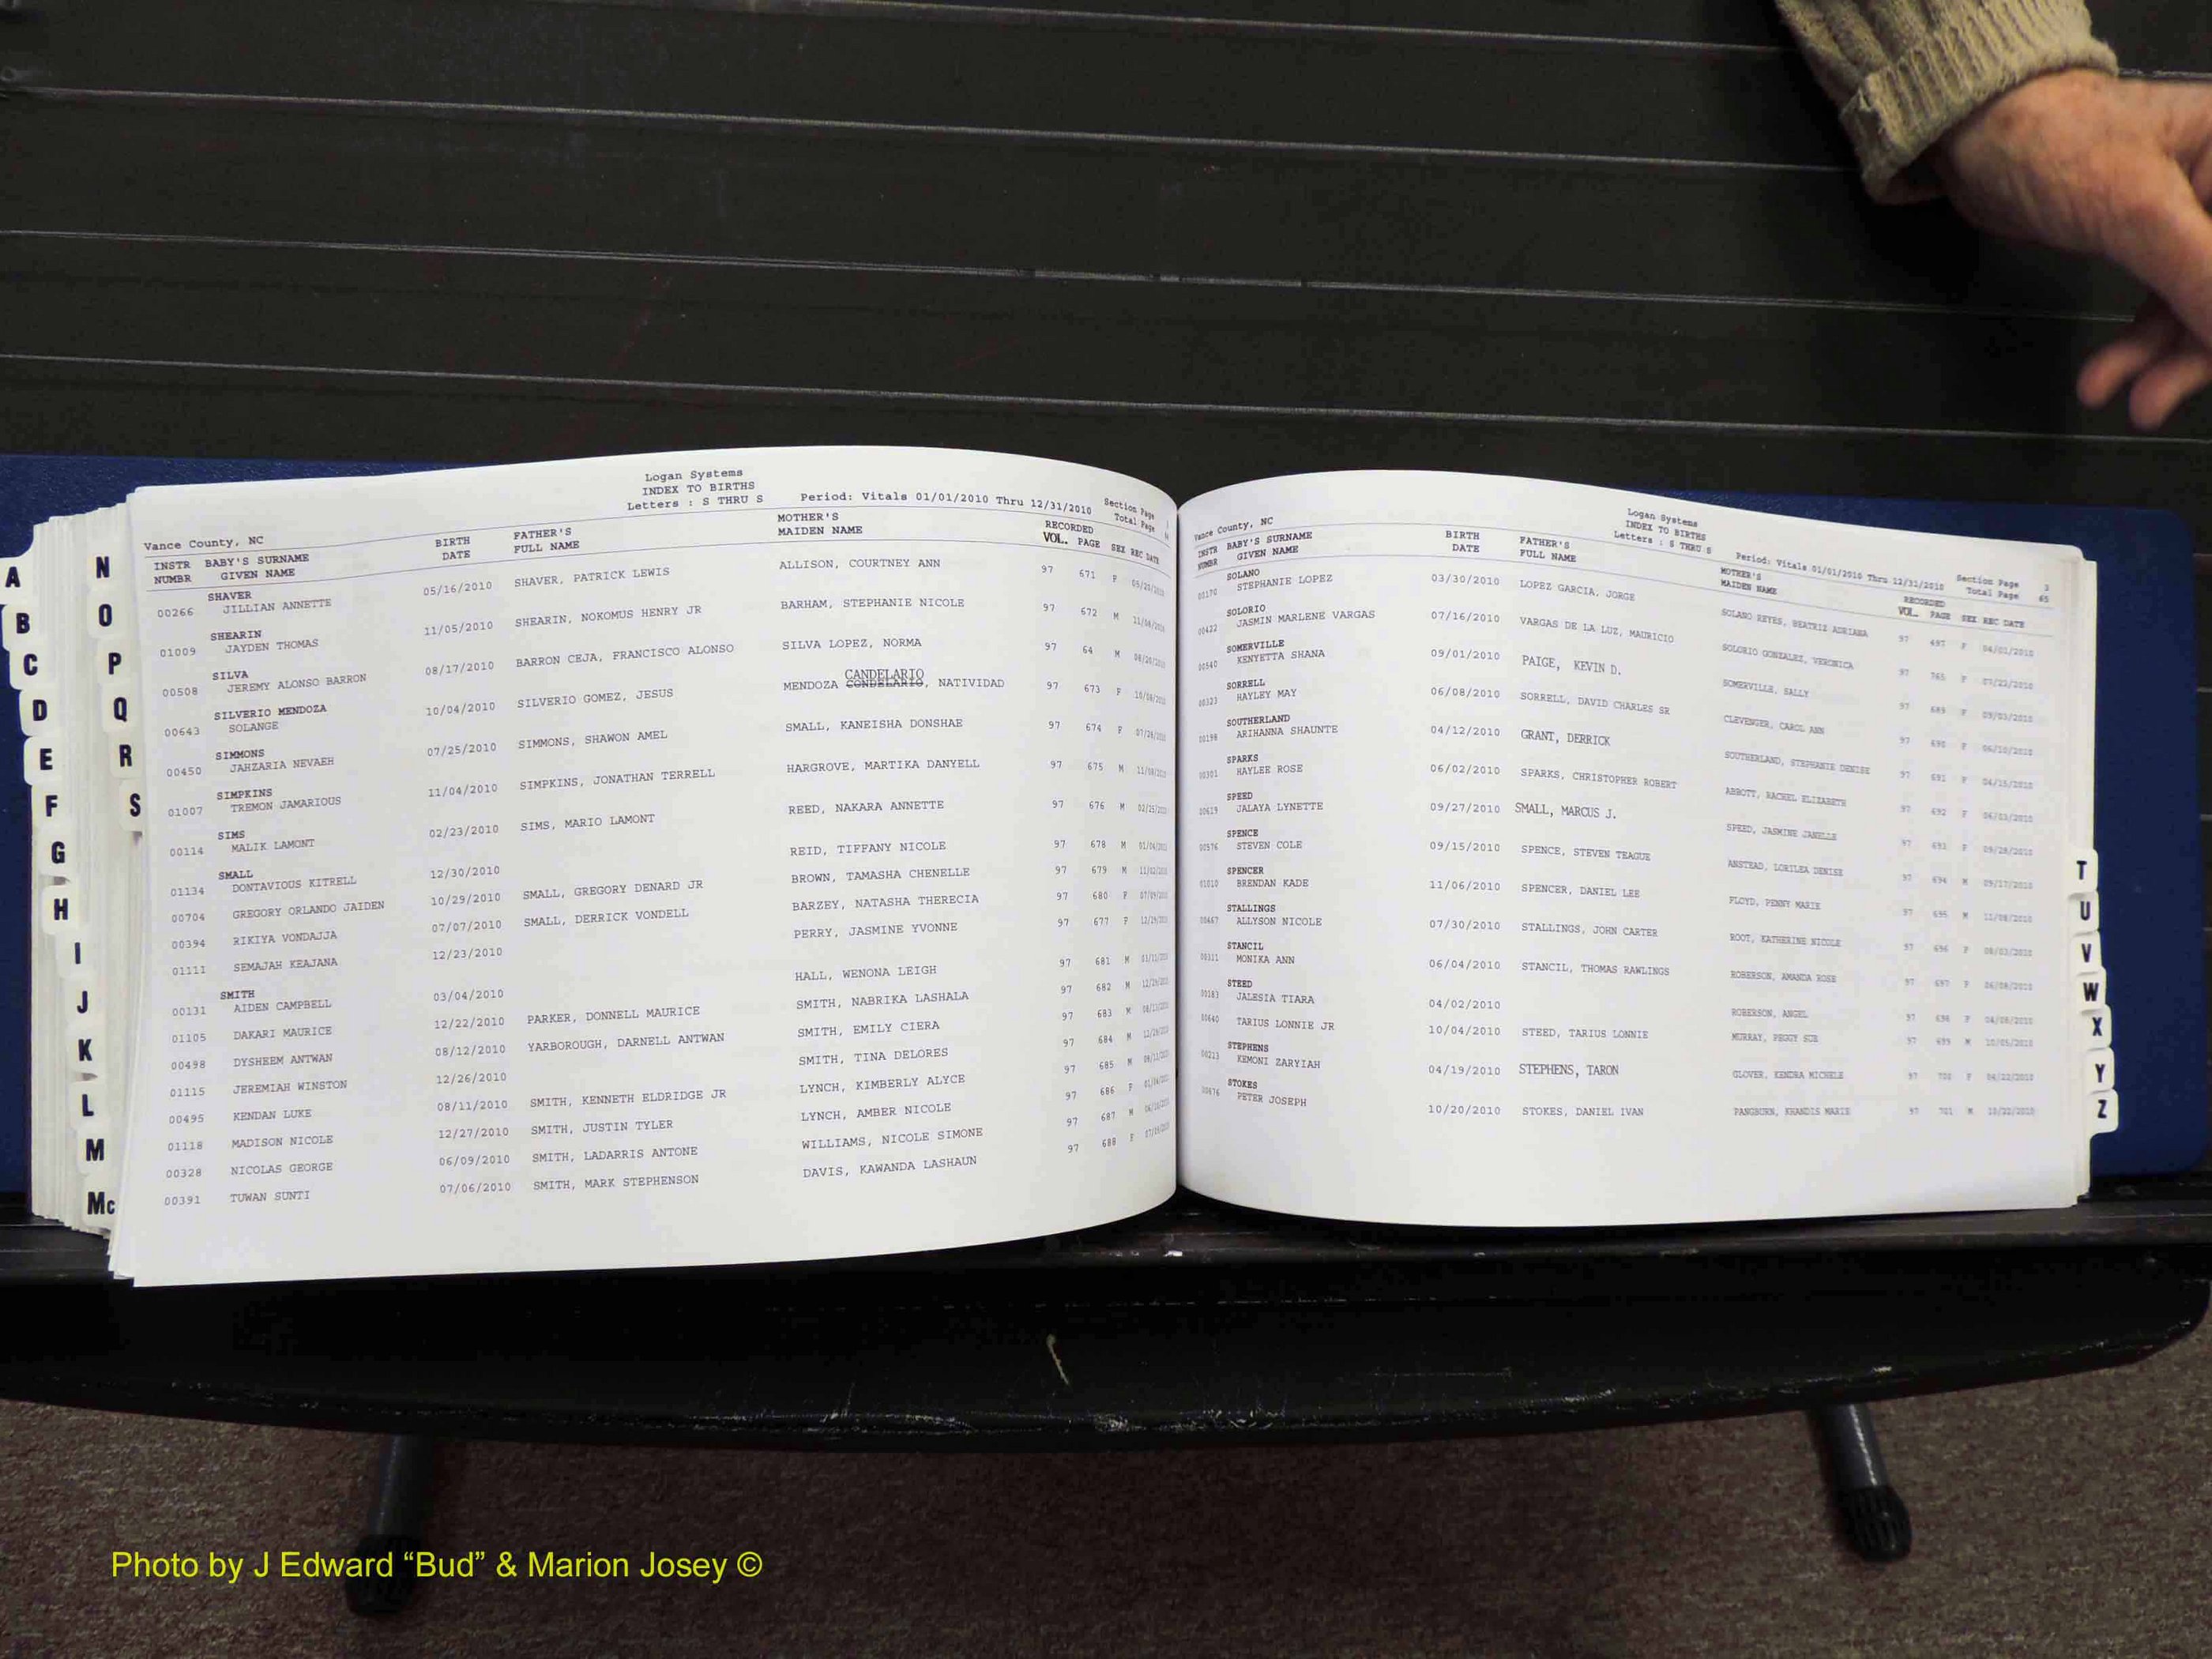 Logan Systems
INDEX TO BIRTHS
Letters : S THRU S Period: Vitals 01/01/2010 Thru 12/31/2010 Section Page
Total Page
Vance County, NC
INSTR BABY'S SURNAME BIRTH FATHER'S MOTHER'S RECORDED
NUMBR GIVEN NAME DATE FULL NAME MAIDEN NAME VOL. PAGE SEX REC DATE
SHAVER
00266 JILLIAN ANNETTE 05/16/2010 SHAVER, PATRICK LEWIS ALLISON, COURTNEY ANN 97 671 F
SHEARIN
01009 JAYDEN THOMAS 11/05/2010 SHEARIN, NOKOMUS HENRY JR BARHAM, STEPHANIE NICOLE 97 672 M
SILVA
00508 JEREMY ALONSO BARRON 08/17/2010 BARRON CEJA, FRANCISCO ALONSO SILVA LOPEZ, NORMA 97 64 M
CANDELARIO
SILVERIO MENDOZA
00643 SOLANGE 10/04/2010 SILVERIO GOMEZ, JESUS MENDOZA CONDELARIO, NATIVIDAD 97 673 F
SIMMONS
00450 JAHZARIA NEVAEH 07/25/2010 SIMMONS, SHAWON AMEL SMALL, KANEISHA DONSHAE 97 674 F
SIMPKINS
01007 TREMON JAMARIOUS 11/04/2010 SIMPKINS, JONATHAN TERRELL HARGROVE, MARTIKA DANYELL 97 675 M
SIMS
00114 MALIK LAMONT 02/23/2010 SIMS, MARIO LAMONT REED, NAKARA ANNETTE 97 676 M
SMALL
01134 DONTAVIOUS KITRELL 12/30/2010 REID, TIFFANY NICOLE 97 678 M
00704 GREGORY ORLANDO JAIDEN 10/29/2010 SMALL, GREGORY DENARD JR BROWN, TAMASHA CHENELLE 97 679 M
00394 RIKIYA VONDAJJA 07/07/2010 SMALL, DERRICK VONDELL BARZEY, NATASHA THERECIA 97 680 F
01111 SEMAJAH KEAJANA 12/23/2010 PERRY, JASMINE YVONNE 97 677 F
SMITH
00131 AIDEN CAMPBELL 03/04/2010 HALL, WENONA LEIGH 97 681 M
01105 DAKARI MAURICE 12/22/2010 PARKER, DONNELL MAURICE SMITH, NABRIKA LASHALA 97 682 M
00498 DYSHEEM ANTWAN 08/12/2010 YARBOROUGH, DARNELL ANTWAN SMITH, EMILY CIERA 97 683 M
01115 JEREMIAH WINSTON 12/26/2010 SMITH, TINA DELORES 97 684 M
00495 KENDAN LUKE 08/11/2010 SMITH, KENNETH ELDRIDGE JR LYNCH, KIMBERLY ALYCE 97 685 M
01118 MADISON NICOLE 12/27/2010 SMITH, JUSTIN TYLER LYNCH, AMBER NICOLE 97 686 F
00328 NICOLAS GEORGE 06/09/2010 SMITH, LADARRIS ANTONE WILLIAMS, NICOLE SIMONE 97 687 M
00391 TUWAN SUNTI 07/06/2010 SMITH, MARK STEPHENSON DAVIS, KAWANDA LASHAUN 97 688 F
Logan Systems
INDEX TO BIRTHS
Letters : S THRU S Period: Vitals 01/01/2010 Thru 12/31/2010 Section Page 3
Total Page 65
Vance County, NC
INSTR BABY'S SURNAME BIRTH FATHER'S MOTHER'S RECORDED
NUMBR GIVEN NAME DATE FULL NAME MAIDEN NAME VOL. PAGE SEX REC DATE
SOLANO
00170 STEPHANIE LOPEZ 03/30/2010 LOPEZ GARCIA, JORGE SOLANO REYES, BEATRIZ ADRIANA 97 497 F 04/01/2010
SOLORIO
00422 JASMIN MARLENE VARGAS 07/16/2010 VARGAS DE LA LUZ, MAURICIO SOLORIO GONZALEZ, VERONICA 97 765 F 07/22/2010
SOMERVILLE
00540 KENYETTA SHANA 09/01/2010 PAIGE, KEVIN D. SOMERVILLE, SALLY 97 689 F 09/03/2010
SORRELL
00323 HAYLEY MAY 06/08/2010 SORRELL, DAVID CHARLES SR CLEVENGER, CAROL ANN 97 690 F 06/10/2010
SOUTHERLAND
00198 ARIHANNA SHAUNTE 04/12/2010 GRANT, DERRICK SOUTHERLAND, STEPHANIE DENISE 97 691 F 04/15/2010
SPARKS
00301 HAYLEE ROSE 06/02/2010 SPARKS, CHRISTOPHER ROBERT ABBOTT, RACHEL ELIZABETH 97 692 F 06/03/2010
SPEED
00619 JALAYA LYNETTE 09/27/2010 SMALL, MARCUS J. SPEED, JASMINE JANELLE 97 693 F 09/28/2010
SPENCE
00576 STEVEN COLE 09/15/2010 SPENCE, STEVEN TEAGUE ANSTEAD, LORILEA DENISE 97 694 M 09/17/2010
SPENCER
01010 BRENDAN KADE 11/06/2010 SPENCER, DANIEL LEE FLOYD, PENNY MARIE 97 695 M 11/08/2010
STALLINGS
00467 ALLYSON NICOLE 07/30/2010 STALLINGS, JOHN CARTER ROOT, KATHERINE NICOLE 97 696 F 08/03/2010
STANCIL
00311 MONIKA ANN 06/04/2010 STANCIL, THOMAS RAWLINGS ROBERSON, AMANDA ROSE 97 697 F 06/08/2010
STEED
00183 JALESIA TIARA 04/02/2010 ROBERSON, ANGEL 97 698 F 04/08/2010
00640 TARIUS LONNIE JR 10/04/2010 STEED, TARIUS LONNIE MURRAY, PEGGY SUE 97 699 M 10/05/2010
STEPHENS
00213 KEMONI ZARYIAH 04/19/2010 STEPHENS, TARON GLOVER, KENDRA MICHELE 97 700 F 04/22/2010
STOKES
00676 PETER JOSEPH 10/20/2010 STOKES, DANIEL IVAN PANGBURN, KHANDIS MARIE 97 701 M 10/22/2010
A
B
C
D
E
F
G
H
I
J
K
L
M
Mc
N
O
P
Q
R
S
T
U
V
W
X
Y
Z
Photo by J Edward “Bud” & Marion Josey ©